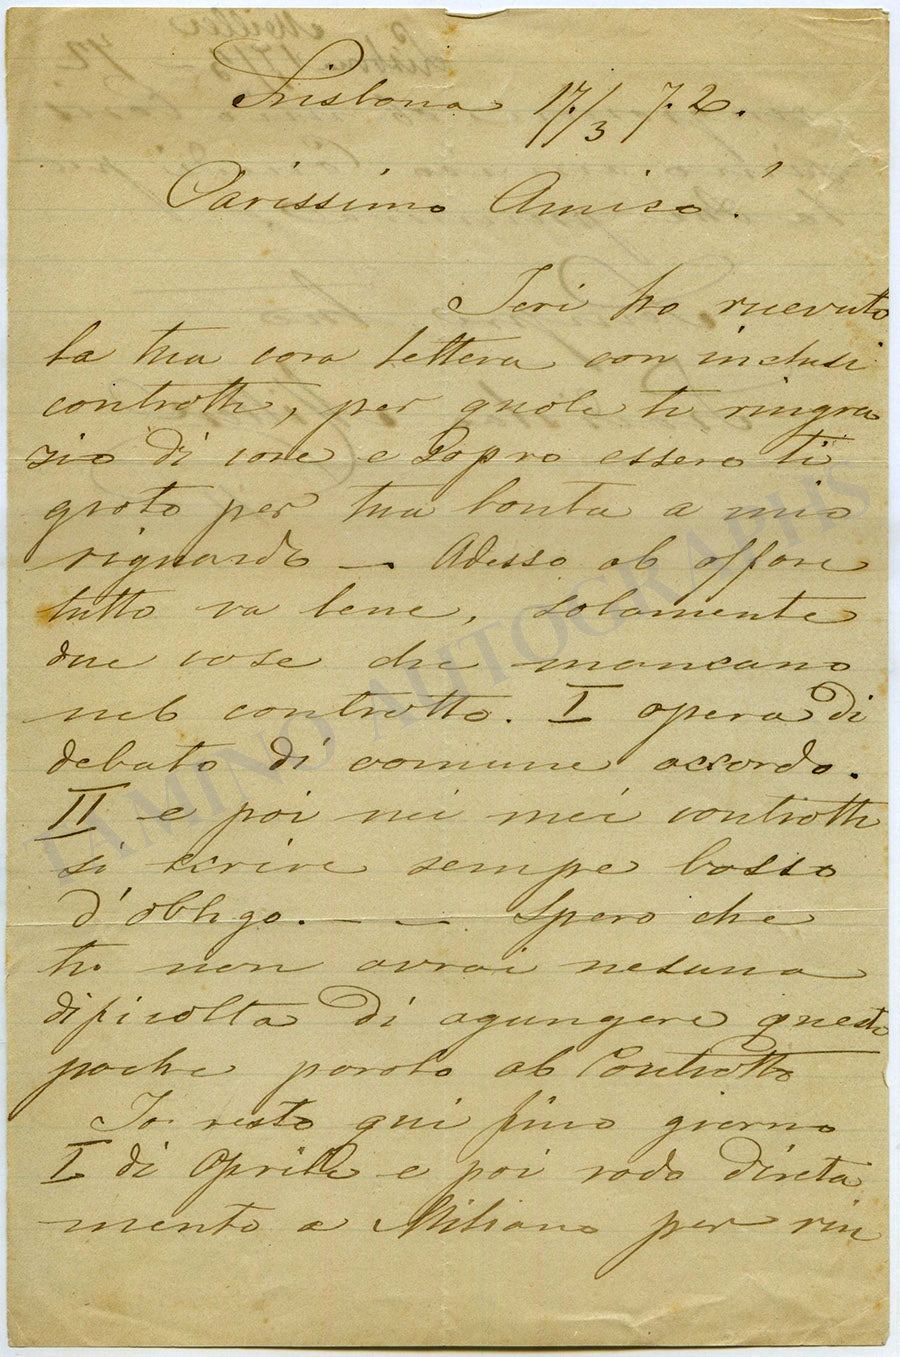 Lisbona 17./3 72.
Carissimo Amico!
Ieri ho ricevuto
la tua cara lettera con inclusi
contratti, per quale ti ringra
zio di core e sapro essero ti
grato per tua bonta a mio
riguardo — Adesso al affare
tutto va bene, solamente
due cose che mancano
nel contratto. I opera di
debuto di comune accordo.
II e poi nei miei contratti
si scrive sempre basso
d'obligo. — — Spero che
tu non avrai nesuna
dificolta di agungere questo
poche parole al Contratto
Io resto qui fino giorno
I di Aprile e poi vado direta
mento a Milano per rin
TAMINO AUTOGRAPHS